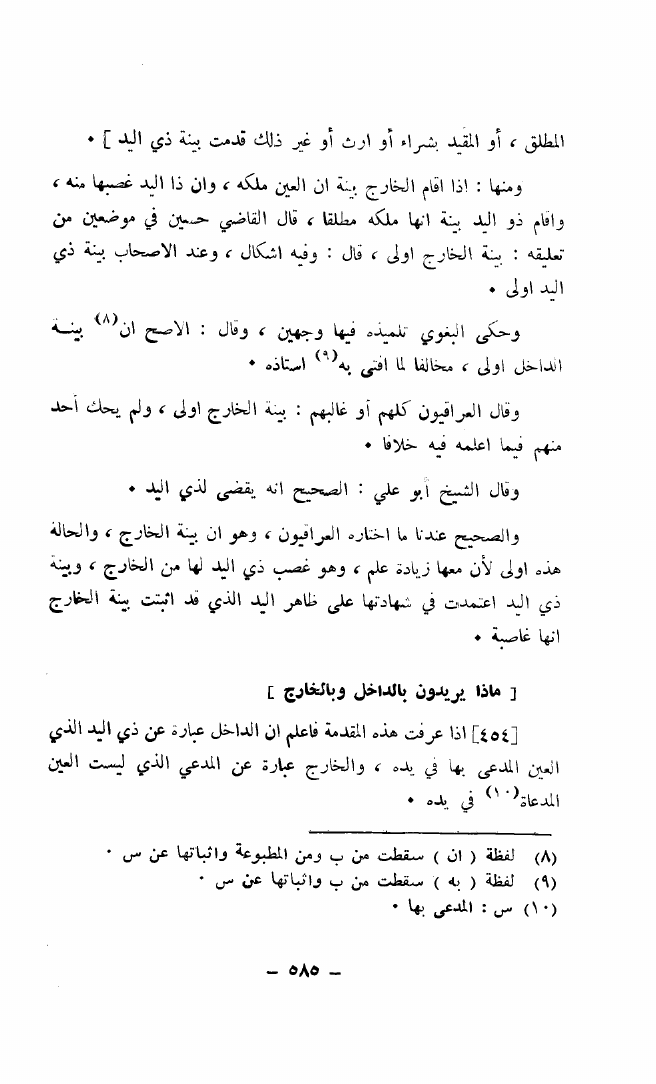 المطلق ، أو المقيد بشراء أو ارث أو غير ذلك قدمت بينة ذي اليد ] •
ومنها : اذا اقام الخارج بينة ان العين ملكه ، وان ذا اليد غصبها منه ،
واقام ذو اليد بينة انها ملكه مطلقا ، قال القاضي حسين في موضعين من
تعليقه : بينة الخارج اولى ، قال : وفيه اشكال ، وعند الاصحاب بينة ذي
اليد اولى •
وحكى البغوي تلميذه فيها وجهين ، وقال : الاصح ان(٨) بينــة
الداخل اولى ، مخالفا لما افتى به(٩) استاذه •
وقال العراقيون كلهم أو غالبهم : بينة الخارج اولى ، ولم يحك أحد
منهم فيما اعلمه فيه خلافا •
وقال الشيخ أبو علي : الصحيح انه يقضى لذي اليد •
والصحيح عندنا ما اختاره العراقيون ، وهو ان بينة الخارج ، والحالة
هذه اولى لأن معها زيادة علم ، وهو غصب ذي اليد لها من الخارج ، وبينة
ذي اليد اعتمدت في شهادتها على ظاهر اليد الذي قد اثبتت بينة الخارج
انها غاصبة •
[ ماذا يريدون بالداخل وبالخارج ]
[٤٥٤] اذا عرفت هذه المقدمة فاعلم ان الداخل عبارة عن ذي اليد الذي
العين المدعى بها في يده ، والخارج عبارة عن المدعي الذي ليست العين
المدعاة(١٠) في يده •
(٨) لفظة ( ان ) سقطت من ب ومن المطبوعة واثباتها عن س •
(٩) لفظة ( به ) سقطت من ب واثباتها عن س •
(١٠) س : المدعى بها •
– ٥٨٥ –